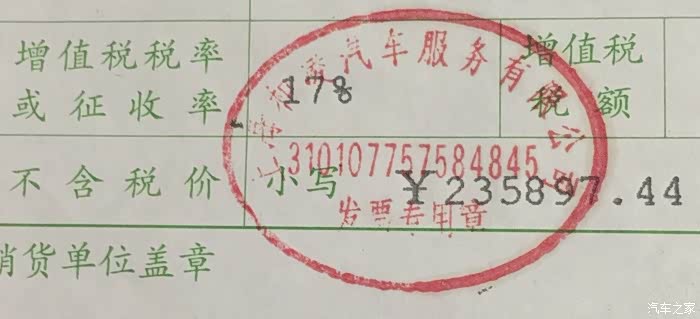 增值税税率 增值税
或征收率 17% 税额
汽车服务有限公司
310107757584845
不含税价 小写 ￥235897.44
发票专用章
销货单位盖章
汽车之家